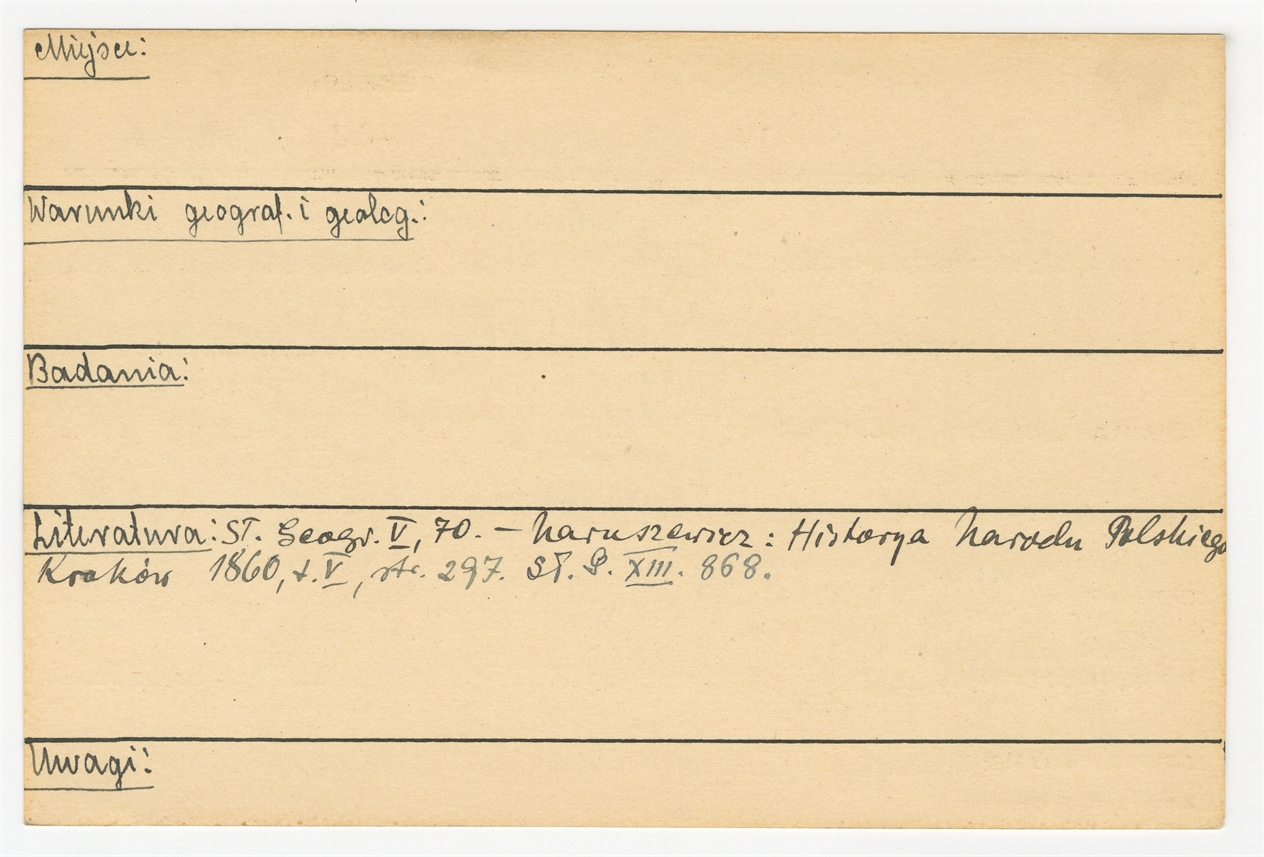 Miejsce:
Warunki geograf. i geolog.:
Badania:
Literatura: Sł. Geogr. V, 70. – Naruszewicz: Historya Narodu Polskiego
Kraków 1860, t. V, str. 297. Sł. G. XIII. 868.
Uwagi: